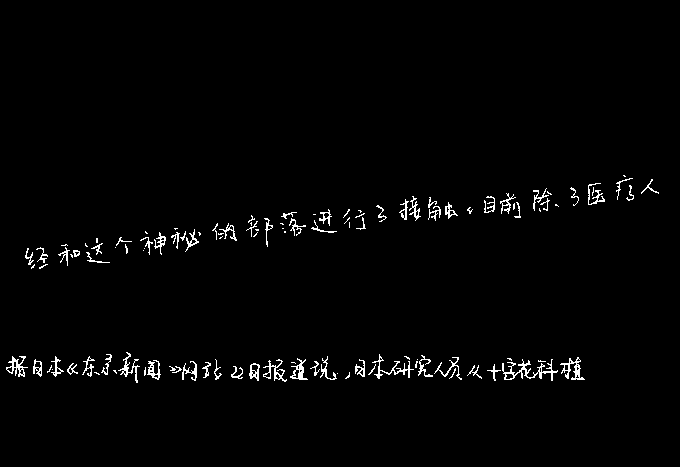 经和这个神秘的部落进行了接触。目前除了医疗人
据日本《东京新闻》网站22日报道说,日本研究人员从十字花科植